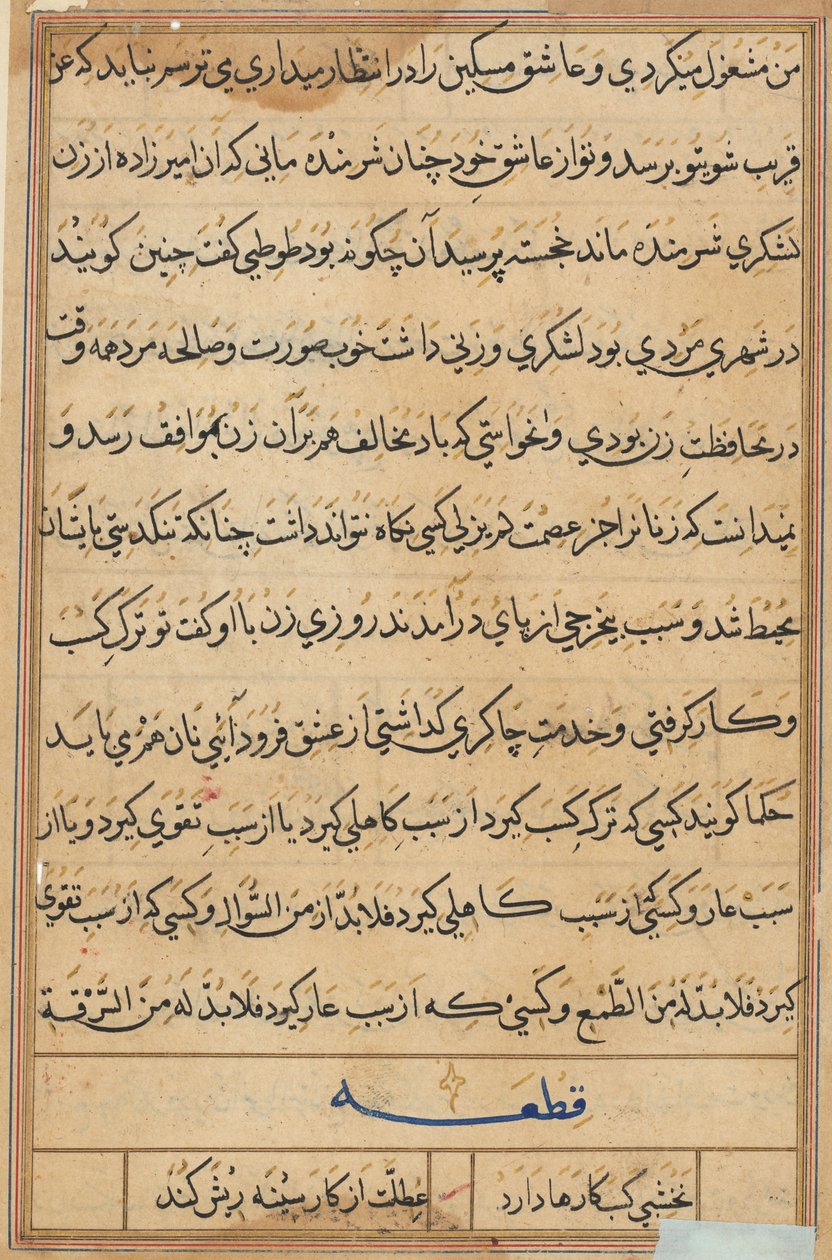 من مشغول میکردی و عاشق مسکین را در انتظار میداری می ترسم نباید که عن
قریب شوی تو برسد و تو از عاشق خود چنان شرمنده مانی که آن امیرزاده از زن
لشکری شرمنده ماند خجسته پرسید آن چکونه بود طوطی کفت چنین کویند
در شهری مردی بود لشکری و زنی داشت خوب صورت و صالحه مرد همه وقت
در محافظت زن بودی و نخواستی که باد مخالف هم بر آن زن موافق رسد و
نمیدانست که زنانرا جز عصمت لم یزلی کسی نکاه نتواند داشت چنانکه تنکدستی بایشان
محیط شد و سبب بیخرجی از پای در آمدند روزی زن با او کفت تو ترک کسب
و کار کرفتی و خدمت چاکری کذاشتی از عشق فرود آئی نان هم می باید
حکما کویند کسی که ترک کسب کیرد از سبب کاهلی کیرد یا از سبب تقوی کیرد و یا از
سبب عار و کسی که از سبب کاهلی کیرد فلا بد از من السؤال و کسی که از سبب تقوی
کیرد فلا بد له من الطمع و کسی که از سبب عار کیرد فلا بد له من السرقة
قطعه
نخشبی کسب کارها دارد عطلت از کار سینه ریش کند